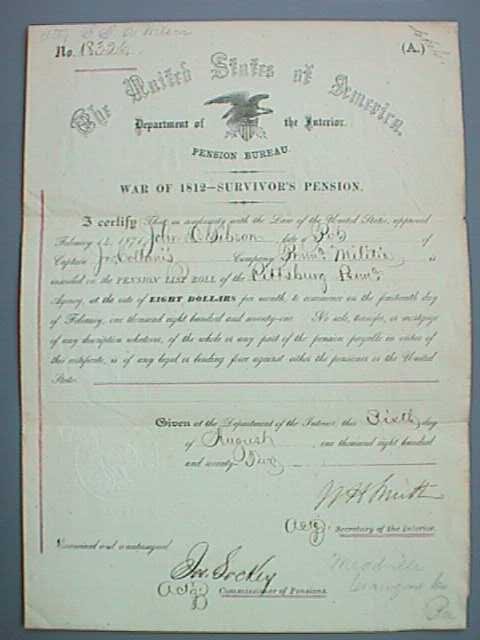 No. 18326
(A.)
The United States of America,
Department of the Interior.
PENSION BUREAU.
WAR OF 1812—SURVIVOR'S PENSION.
I certify That in conformity with the Law of the United States, approved
February 14, 1871, John Gibson late a of
Captain Company Militia is
inscribed on the PENSION LIST ROLL of the Pittsburg
Agency, at the rate of EIGHT DOLLARS per month, to commence on the fourteenth day
of February, one thousand eight hundred and seventy-one. No sale, transfer, or mortgage
of any description whatever, of the whole or any part of the pension payable in virtue of
this certificate, is of any legal or binding force against either the pensioner or the United
States.
Given at the Department of the Interior, this Sixth day
of August one thousand eight hundred
and seventy-two
W H Smith
Actg. Secretary of the Interior.
Examined and countersigned
Jos Lockey
Actg Commissioner of Pensions.
Meadville
Pa